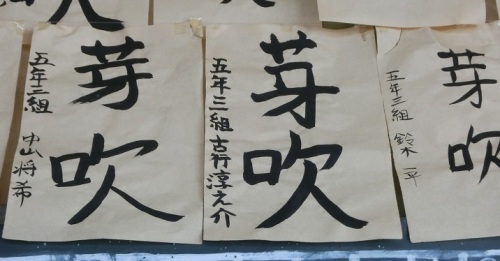 芽吹
五年三組 中山将希
芽吹
五年三組 吉行淳之介
芽吹
五年三組 鈴木一平